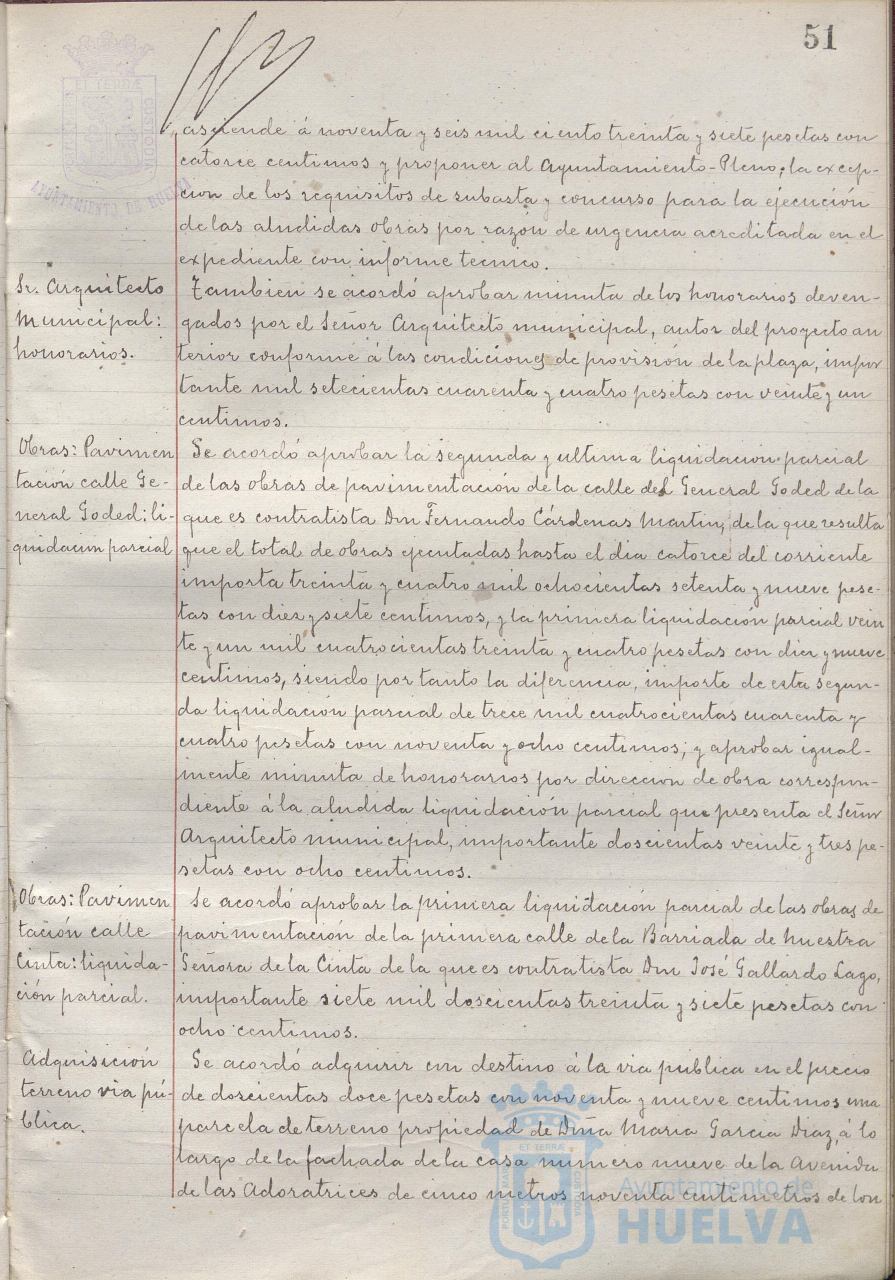 51
AYUNTAMIENTO DE HUELVA
asciende á noventa y seis mil ciento treinta y siete pesetas con
catorce centimos y proponer al Ayuntamiento-Pleno, la excep-
cion de los requisitos de subasta y concurso para la ejecución
de las aludidas obras por razón de urgencia acreditada en el
expediente con informe tecnico.
Sr. Arquitecto
Municipal:
honorarios.
Tambien se acordó aprobar minuta de los honorarios deven-
gados por el Señor Arquitecto municipal, autor del proyecto an
terior conforme á las condiciones de provisión de la plaza, impor
tante mil setecientas cuarenta y cuatro pesetas con veinte y un
centimos.
Obras: Pavimen
tación calle Ge-
neral Goded: li-
quidacion parcial
Se acordó aprobar la segunda y ultima liquidacion parcial
de las obras de pavimentación de la calle del General Goded de la
que es contratista Don Fernando Cárdenas Martin, de la que resulta
que el total de obras ejecutadas hasta el dia catorce del corriente
importa treinta y cuatro mil ochocientas setenta y nueve pese-
tas con diez y siete centimos, y la primera liquidación parcial vein
te y un mil cuatrocientas treinta y cuatro pesetas con diez y nueve
centimos, siendo por tanto la diferencia, importe de esta segun-
da liquidación parcial de trece mil cuatrocientas cuarenta y
cuatro pesetas con noventa y ocho centimos; y aprobar igual-
mente minuta de honorarios por direccion de obra correspon-
diente á la aludida liquidación parcial que presenta el Señor
Arquitecto municipal, importante doscientas veinte y tres pe-
setas con ocho centimos.
Obras: Pavimen
tación calle
Cinta: liquida-
ción parcial.
Se acordó aprobar la primera liquidación parcial de las obras de
pavimentación de la primera calle de la Barriada de Nuestra
Señora de la Cinta de la que es contratista Don José Gallardo Lago,
importante siete mil doscientas treinta y siete pesetas con
ocho centimos.
Adquisición
terreno via pú-
blica.
Se acordó adquirir con destino á la via publica en el precio
de doscientas doce pesetas con noventa y nueve centimos una
parcela de terreno propiedad de Doña Maria Garcia Diaz, á lo
largo de la fachada de la casa numero nueve de la Avenida
de las Adoratrices de cinco metros noventa centimetros de lon
Ayuntamiento de
HUELVA